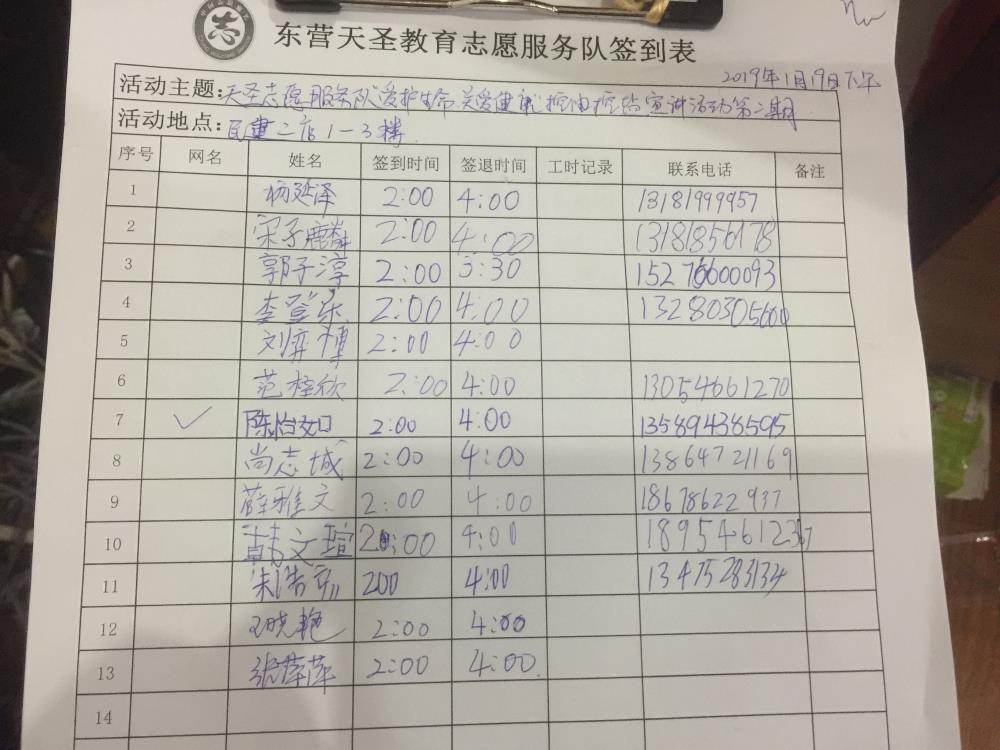 志
东营天圣教育志愿服务队签到表
2019年1月19日下午
活动主题:天圣志愿服务队爱护生命,关爱健康 控油控盐宣讲活动第二期
活动地点:民建二店1-3楼
序号 网名 姓名 签到时间 签退时间 工时记录 联系电话 备注
1 杨延泽 2:00 4:00 13181999957
2 宋子麟 2:00 4:00 13181856178
3 郭子淳 2:00 5:30 15276600093
4 李登乐 2:00 4:00 13280305600
5 刘弈博 2:00 4:00
6 范梓欣 2:00 4:00 13054661270
7 ✓ 陈怡如 2:00 4:00 13589438595
8 尚志城 2:00 4:00 13864721169
9 薛雅文 2:00 4:00 18678622937
10 韩文瑄 2:00 4:00 18954612367
11 朱浩 200 4:00 13475283134
12 王晓艳 2:00 4:00
13 张萍萍 2:00 4:00
14